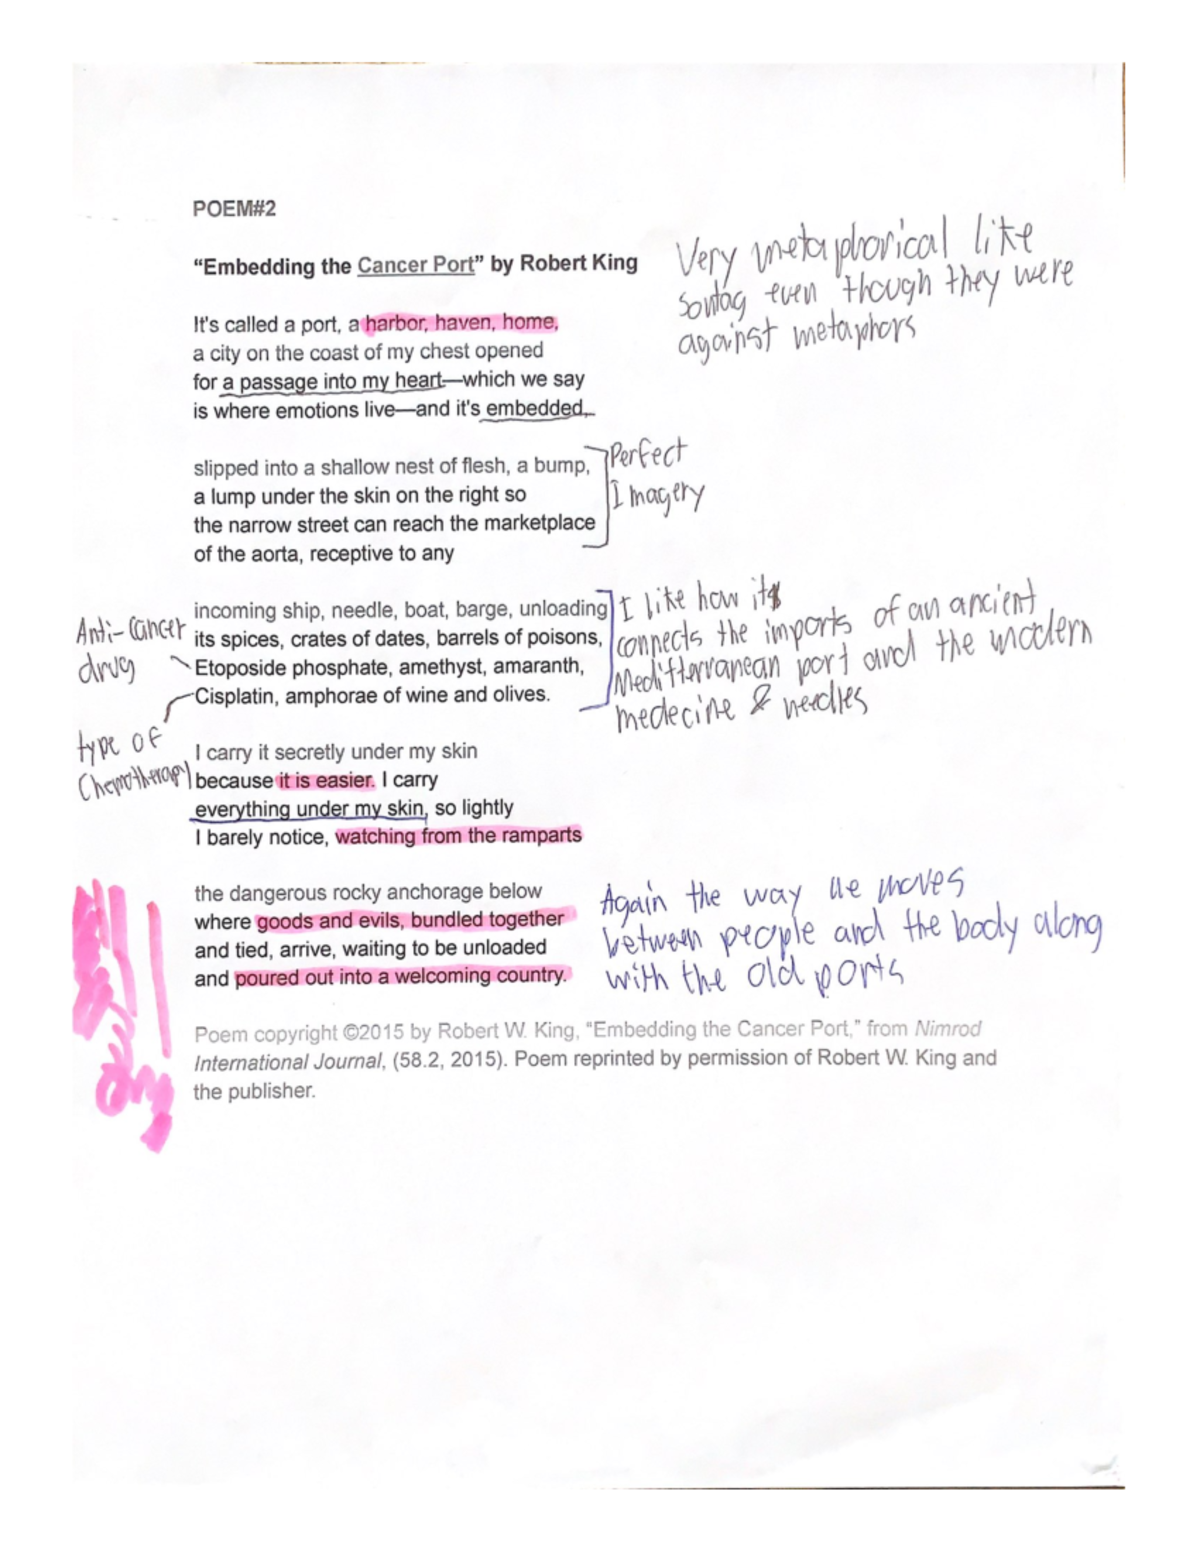 POEM#2
“Embedding the Cancer Port” by Robert King
Very metaphorical like
sontag even though they were
against metaphors
It's called a port, a harbor, haven, home,
a city on the coast of my chest opened
for a passage into my heart—which we say
is where emotions live—and it's embedded,
slipped into a shallow nest of flesh, a bump,
a lump under the skin on the right so
the narrow street can reach the marketplace
of the aorta, receptive to any
Perfect
Imagery
incoming ship, needle, boat, barge, unloading
its spices, crates of dates, barrels of poisons,
Etoposide phosphate, amethyst, amaranth,
Cisplatin, amphorae of wine and olives.
Anti-Cancer
drug
type of
Chemotherapy
I like how its
connects the imports of an ancient
Meditterranean port and the modern
medecine & needles
I carry it secretly under my skin
because it is easier. I carry
everything under my skin, so lightly
I barely notice, watching from the ramparts
the dangerous rocky anchorage below
where goods and evils, bundled together
and tied, arrive, waiting to be unloaded
and poured out into a welcoming country.
Again the way he moves
between people and the body along
with the old ports
Poem copyright ©2015 by Robert W. King, “Embedding the Cancer Port,” from Nimrod
International Journal, (58.2, 2015). Poem reprinted by permission of Robert W. King and
the publisher.